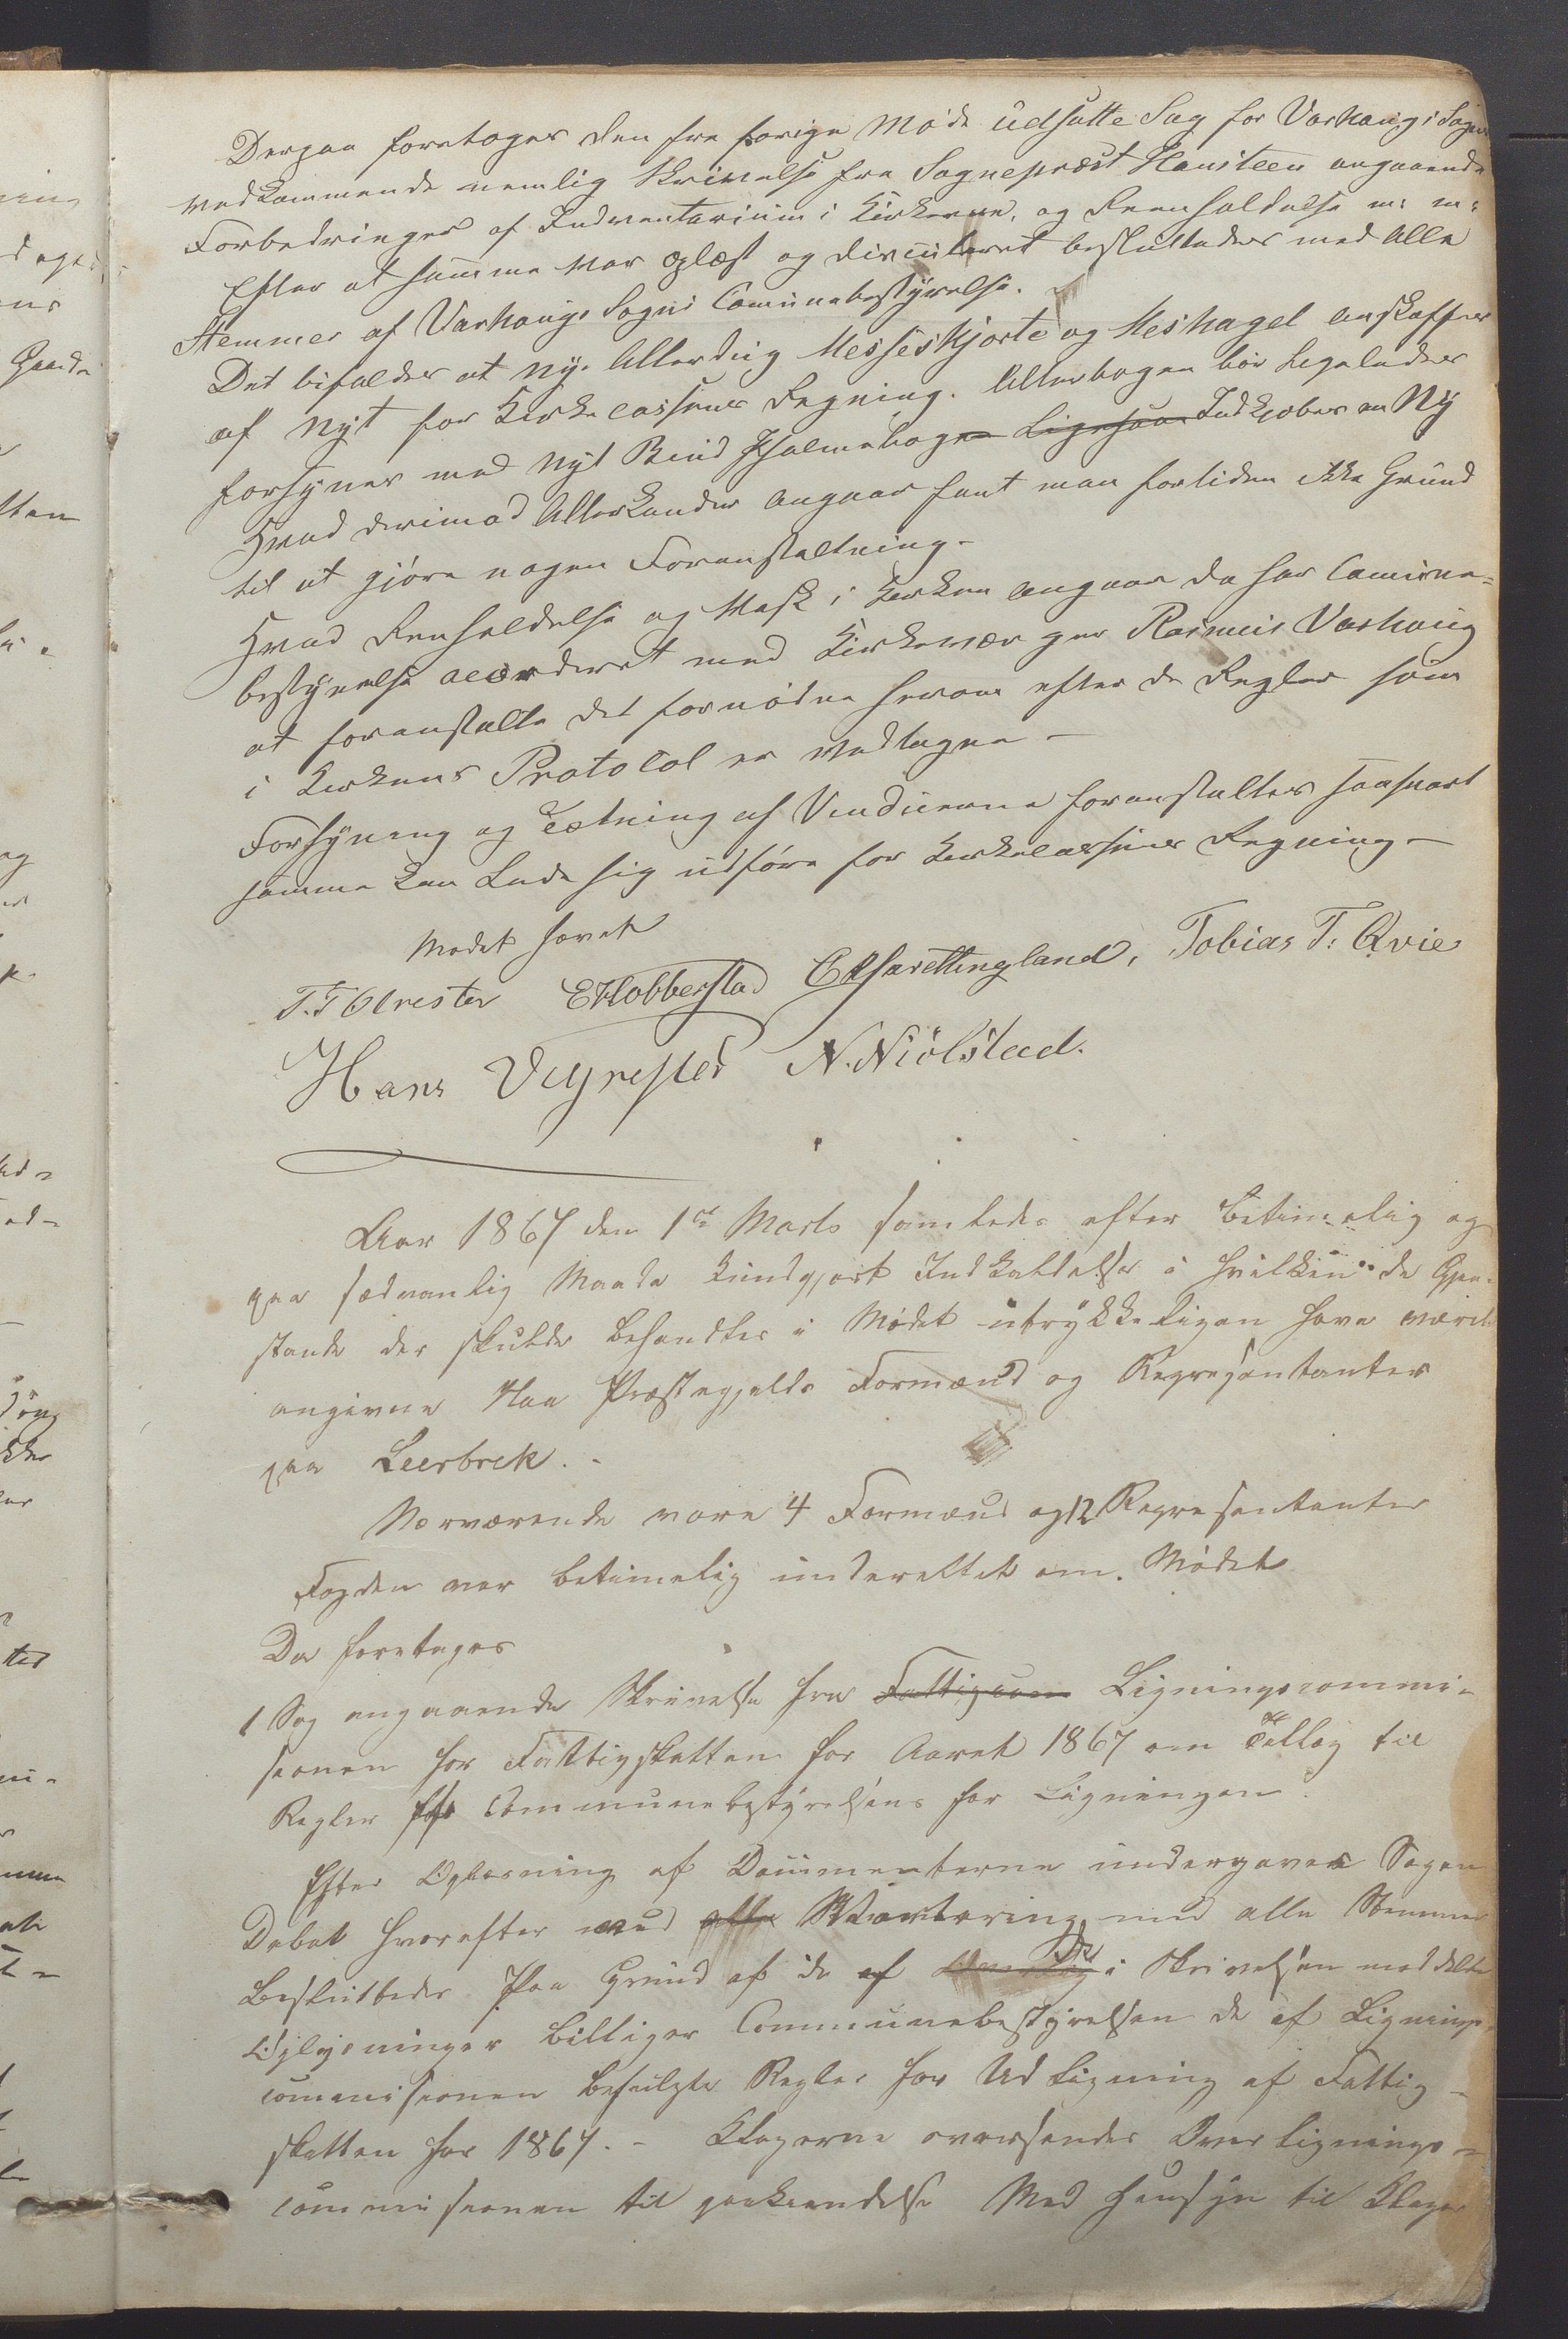 Derpaa foretoges den fra forige Møde udsatte Sag for Varhaugs Sogn
vedkommende nemlig Skrivelse fra Sognepræst Hansteen angaaende
Forbedringer af Indventarium i Kirkerne, og Reenholdelse m: m:
Efter at samme var oplæst og discuteret besluttedes med alle
Stemmer af Varhaugs Sogns Comunebestyrelse.
Det bifaldes at ny Alterdug Messeskjorte og Meshagel anskaffes
af Nyt for Kirkecassens Regning. Alterbogen bør ligeledes
forsynes med nyt Bind Psalmebogen Ligesaa Indkjøbes en Ny
Hvad derimod Alterkander angaar fant man fortiden ikke Grund
til at gjøre nogen Foranstaltning.
Hvad Renholdelse og Vask i Kirken angaar da har Comune=
bestyrelse accorderet med Kirkeværger Rasmus Varhaug
at foranstalte det fornødne herom efter de Regler som
i Kirkens Protocol er vedtagne —
Forsyning og Tætning af Vinduerne foranstaltes saasnart
samme kan Lade sig udføre for Kirkecassens Regning —
Mødet hævet
T. T Obrestad E Hobberstad Tobias T: Qvie
Hans Vigrestad N. Niølstad.
Aar 1867 den 1ste Marts samledes efter betimelig og
paa sædvanlig Maade kundgjort Indkaldelse i hvilken de Gjen-
stande der skulde behandles i Mødet utrykkeligen have været
angivne Haa Præstegjelds Formænd og Repræsentanter
paa Leerbrek.
Nærværende vare 4 Formænd og 12 Repræsentanter
Fogden var betimelig underettet om Mødet
Da foretoges
1 Sag angaaende Skrivelse fra Fattigcom Ligningscommi-
sionen for Fattigskatten for Aaret 1867 om Tillæg til
Regler for Communebestyrelsens for Ligningen.
Efter Oplæsning af Documenterne undergaves Sagen
Debat hvorefter ved alle Votering med alle Stemmer
Besluttedes Paa Grund af de af i Skrivelsen meddelte
Oplysninger billiger Communebestyrelsen de af Lignings-
commisionen befulgte Regler for Udligning af Fattig-
skatten for 1867. - Klagerne oversendes Overlignings-
commisionen til paakjendelse Med Hensyn til Klager